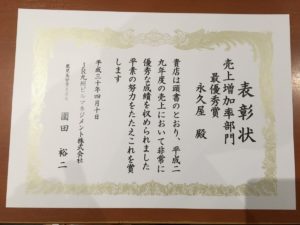 表彰状
売上増加率部門
最優秀賞
永久屋 殿
貴店は頭書のとおり、平成二
九年度の売上において非常に
優秀な成績を収められました
平素の努力をたたえこれを賞
します
平成三十年四月十日
JR九州ビルマネジメント株式会社
園田 裕二